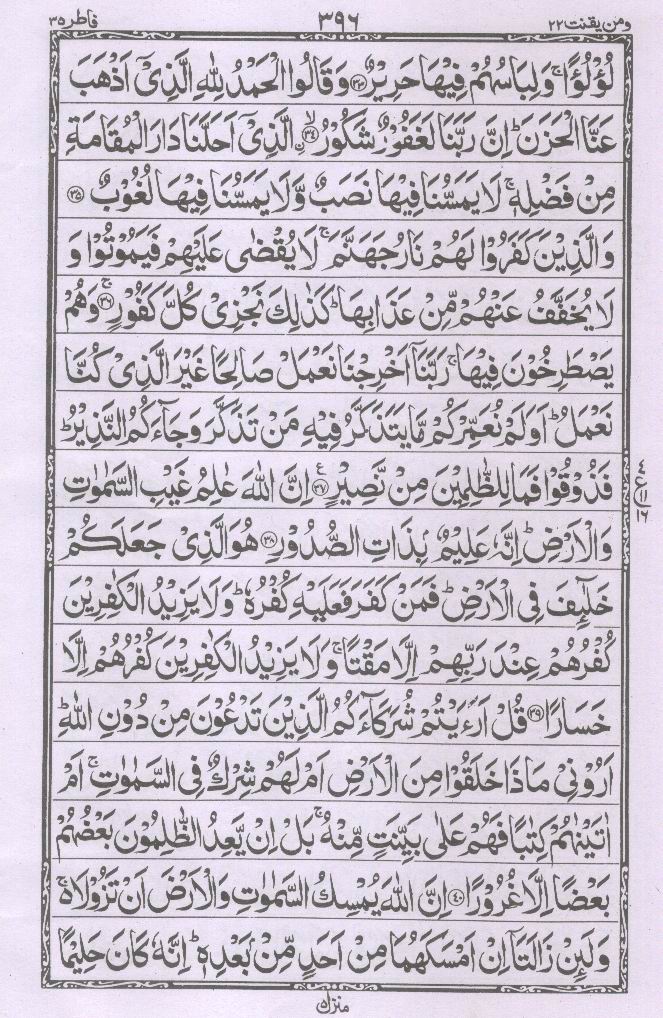 ومن يقنت ٢٢ ٣٩٦ فاطر ٣٥
لُؤْلُؤًا ۚ وَلِبَاسُهُمْ فِيْهَا حَرِيْرٌ ﴿۳۳﴾ وَقَالُوا الْحَمْدُ لِلّٰهِ الَّذِيْۤ اَذْهَبَ
عَنَّا الْحَزَنَ ؕ اِنَّ رَبَّنَا لَغَفُوْرٌ شَكُوْرُ ۙ﴿۳۴﴾ الَّذِيْۤ اَحَلَّنَا دَارَ الْمُقَامَةِ
مِنْ فَضْلِهٖ ۚ لَا يَمَسُّنَا فِيْهَا نَصَبٌ وَّلَا يَمَسُّنَا فِيْهَا لُغُوْبٌ ﴿۳۵﴾
وَالَّذِيْنَ كَفَرُوْا لَهُمْ نَارُ جَهَنَّمَ ۚ لَا يُقْضٰى عَلَيْهِمْ فَيَمُوْتُوْا وَ
لَا يُخَفَّفُ عَنْهُمْ مِّنْ عَذَابِهَا ؕ كَذٰلِكَ نَجْزِيْ كُلَّ كَفُوْرٍ ۚ﴿۳۶﴾ وَهُمْ
يَصْطَرِخُوْنَ فِيْهَا ۚ رَبَّنَاۤ اَخْرِجْنَا نَعْمَلْ صَالِحًا غَيْرَ الَّذِيْ كُنَّا
نَعْمَلُ ؕ اَوَلَمْ نُعَمِّرْكُمْ مَّا يَتَذَكَّرُ فِيْهِ مَنْ تَذَكَّرَ وَجَآءَكُمُ النَّذِيْرُ ؕ
فَذُوْقُوْا فَمَا لِلظّٰلِمِيْنَ مِنْ نَّصِيْرٍ ﴿۳۷﴾ اِنَّ اللّٰهَ عٰلِمُ غَيْبِ السَّمٰوٰتِ
وَالْاَرْضِ ؕ اِنَّهٗ عَلِيْمٌۢ بِذَاتِ الصُّدُوْرِ ﴿۳۸﴾ هُوَ الَّذِيْ جَعَلَكُمْ
خَلٰٓئِفَ فِي الْاَرْضِ ؕ فَمَنْ كَفَرَ فَعَلَيْهِ كُفْرُهٗ ؕ وَلَا يَزِيْدُ الْكٰفِرِيْنَ
كُفْرُهُمْ عِنْدَ رَبِّهِمْ اِلَّا مَقْتًا ۚ وَلَا يَزِيْدُ الْكٰفِرِيْنَ كُفْرُهُمْ اِلَّا
خَسَارًا ﴿۳۹﴾ قُلْ اَرَءَيْتُمْ شُرَكَآءَكُمُ الَّذِيْنَ تَدْعُوْنَ مِنْ دُوْنِ اللّٰهِ ؕ
اَرُوْنِيْ مَاذَا خَلَقُوْا مِنَ الْاَرْضِ اَمْ لَهُمْ شِرْكٌ فِي السَّمٰوٰتِ ۚ اَمْ
اٰتَيْنٰهُمْ كِتٰبًا فَهُمْ عَلٰى بَيِّنَتٍ مِّنْهُ ۚ بَلْ اِنْ يَّعِدُ الظّٰلِمُوْنَ بَعْضُهُمْ
بَعْضًا اِلَّا غُرُوْرًا ﴿۴۰﴾ اِنَّ اللّٰهَ يُمْسِكُ السَّمٰوٰتِ وَالْاَرْضَ اَنْ تَزُوْلَا ۚ
وَلَئِنْ زَالَتَاۤ اِنْ اَمْسَكَهُمَا مِنْ اَحَدٍ مِّنْۢ بَعْدِهٖ ؕ اِنَّهٗ كَانَ حَلِيْمًا
منزل ٥